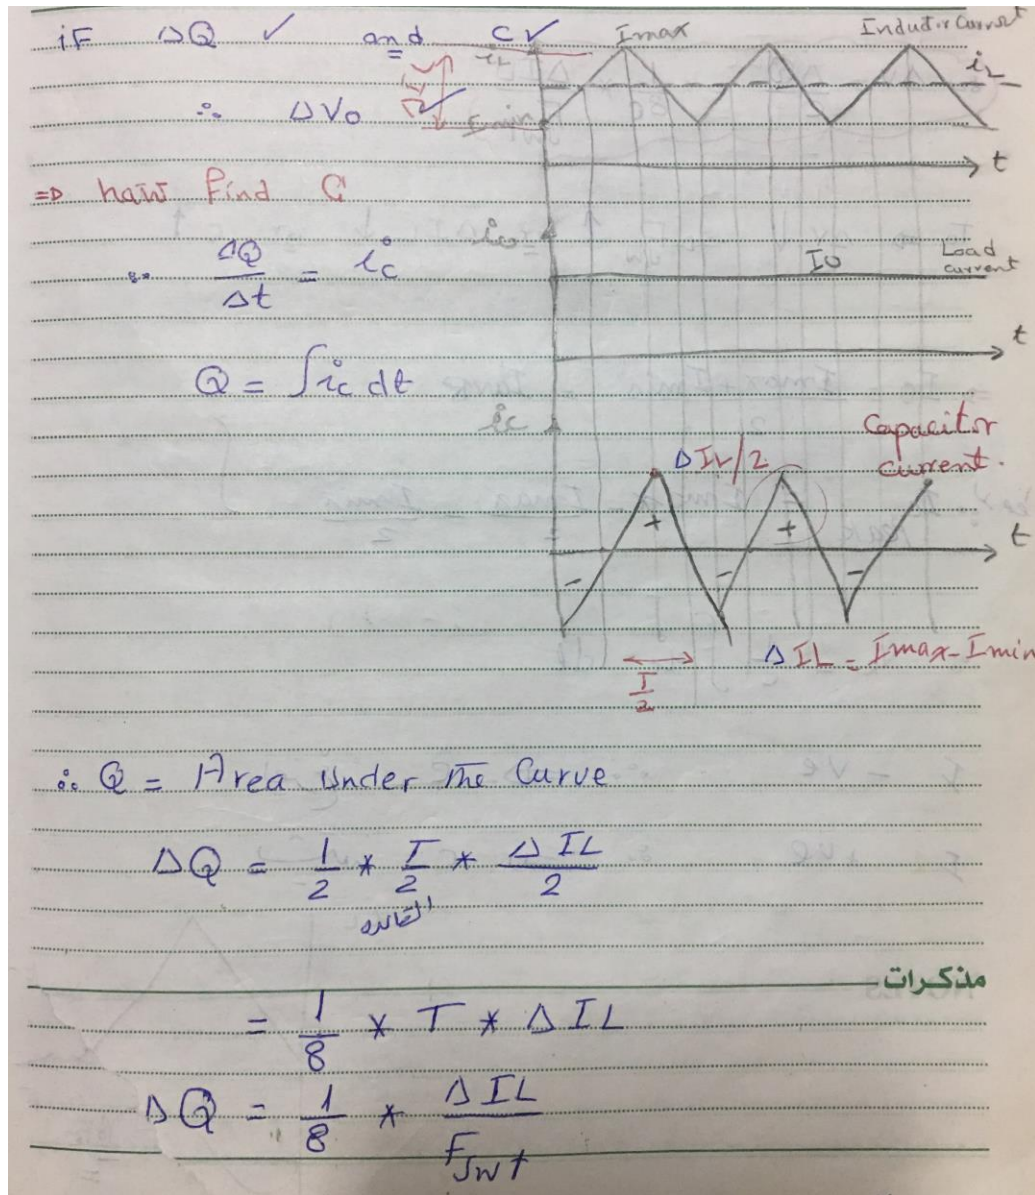 iF ΔQ ✓ and C✓
∴ ΔVo ✓
Imax
Inductor Current
iL
iL
Imin
t
⇒ haw find C
∵ ΔQ/Δt = ic
Io
Load current
t
Q = ∫ic dt
ic
Capacitor current.
ΔIL/2
+ +
t
- - -
T/2
ΔIL = Imax - Imin
∴ Q = Area Under the Curve
ΔQ = 1/2 * T/2 * ΔIL/2
القاعده
مذكرات
= 1/8 * T * ΔIL
ΔQ = 1/8 * ΔIL/Fswt